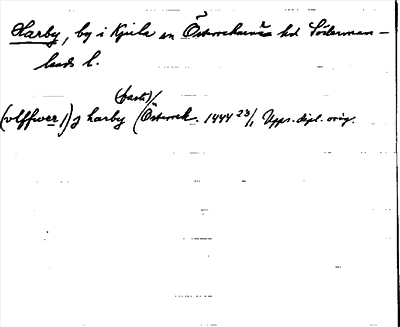 Harby, by i Kjula sn Österrekarne hd Söderman-
lands l.
(pasto)/
(vlffwer i) j harby (Österrek. 1444 23/1 Upps. dipl. orig.